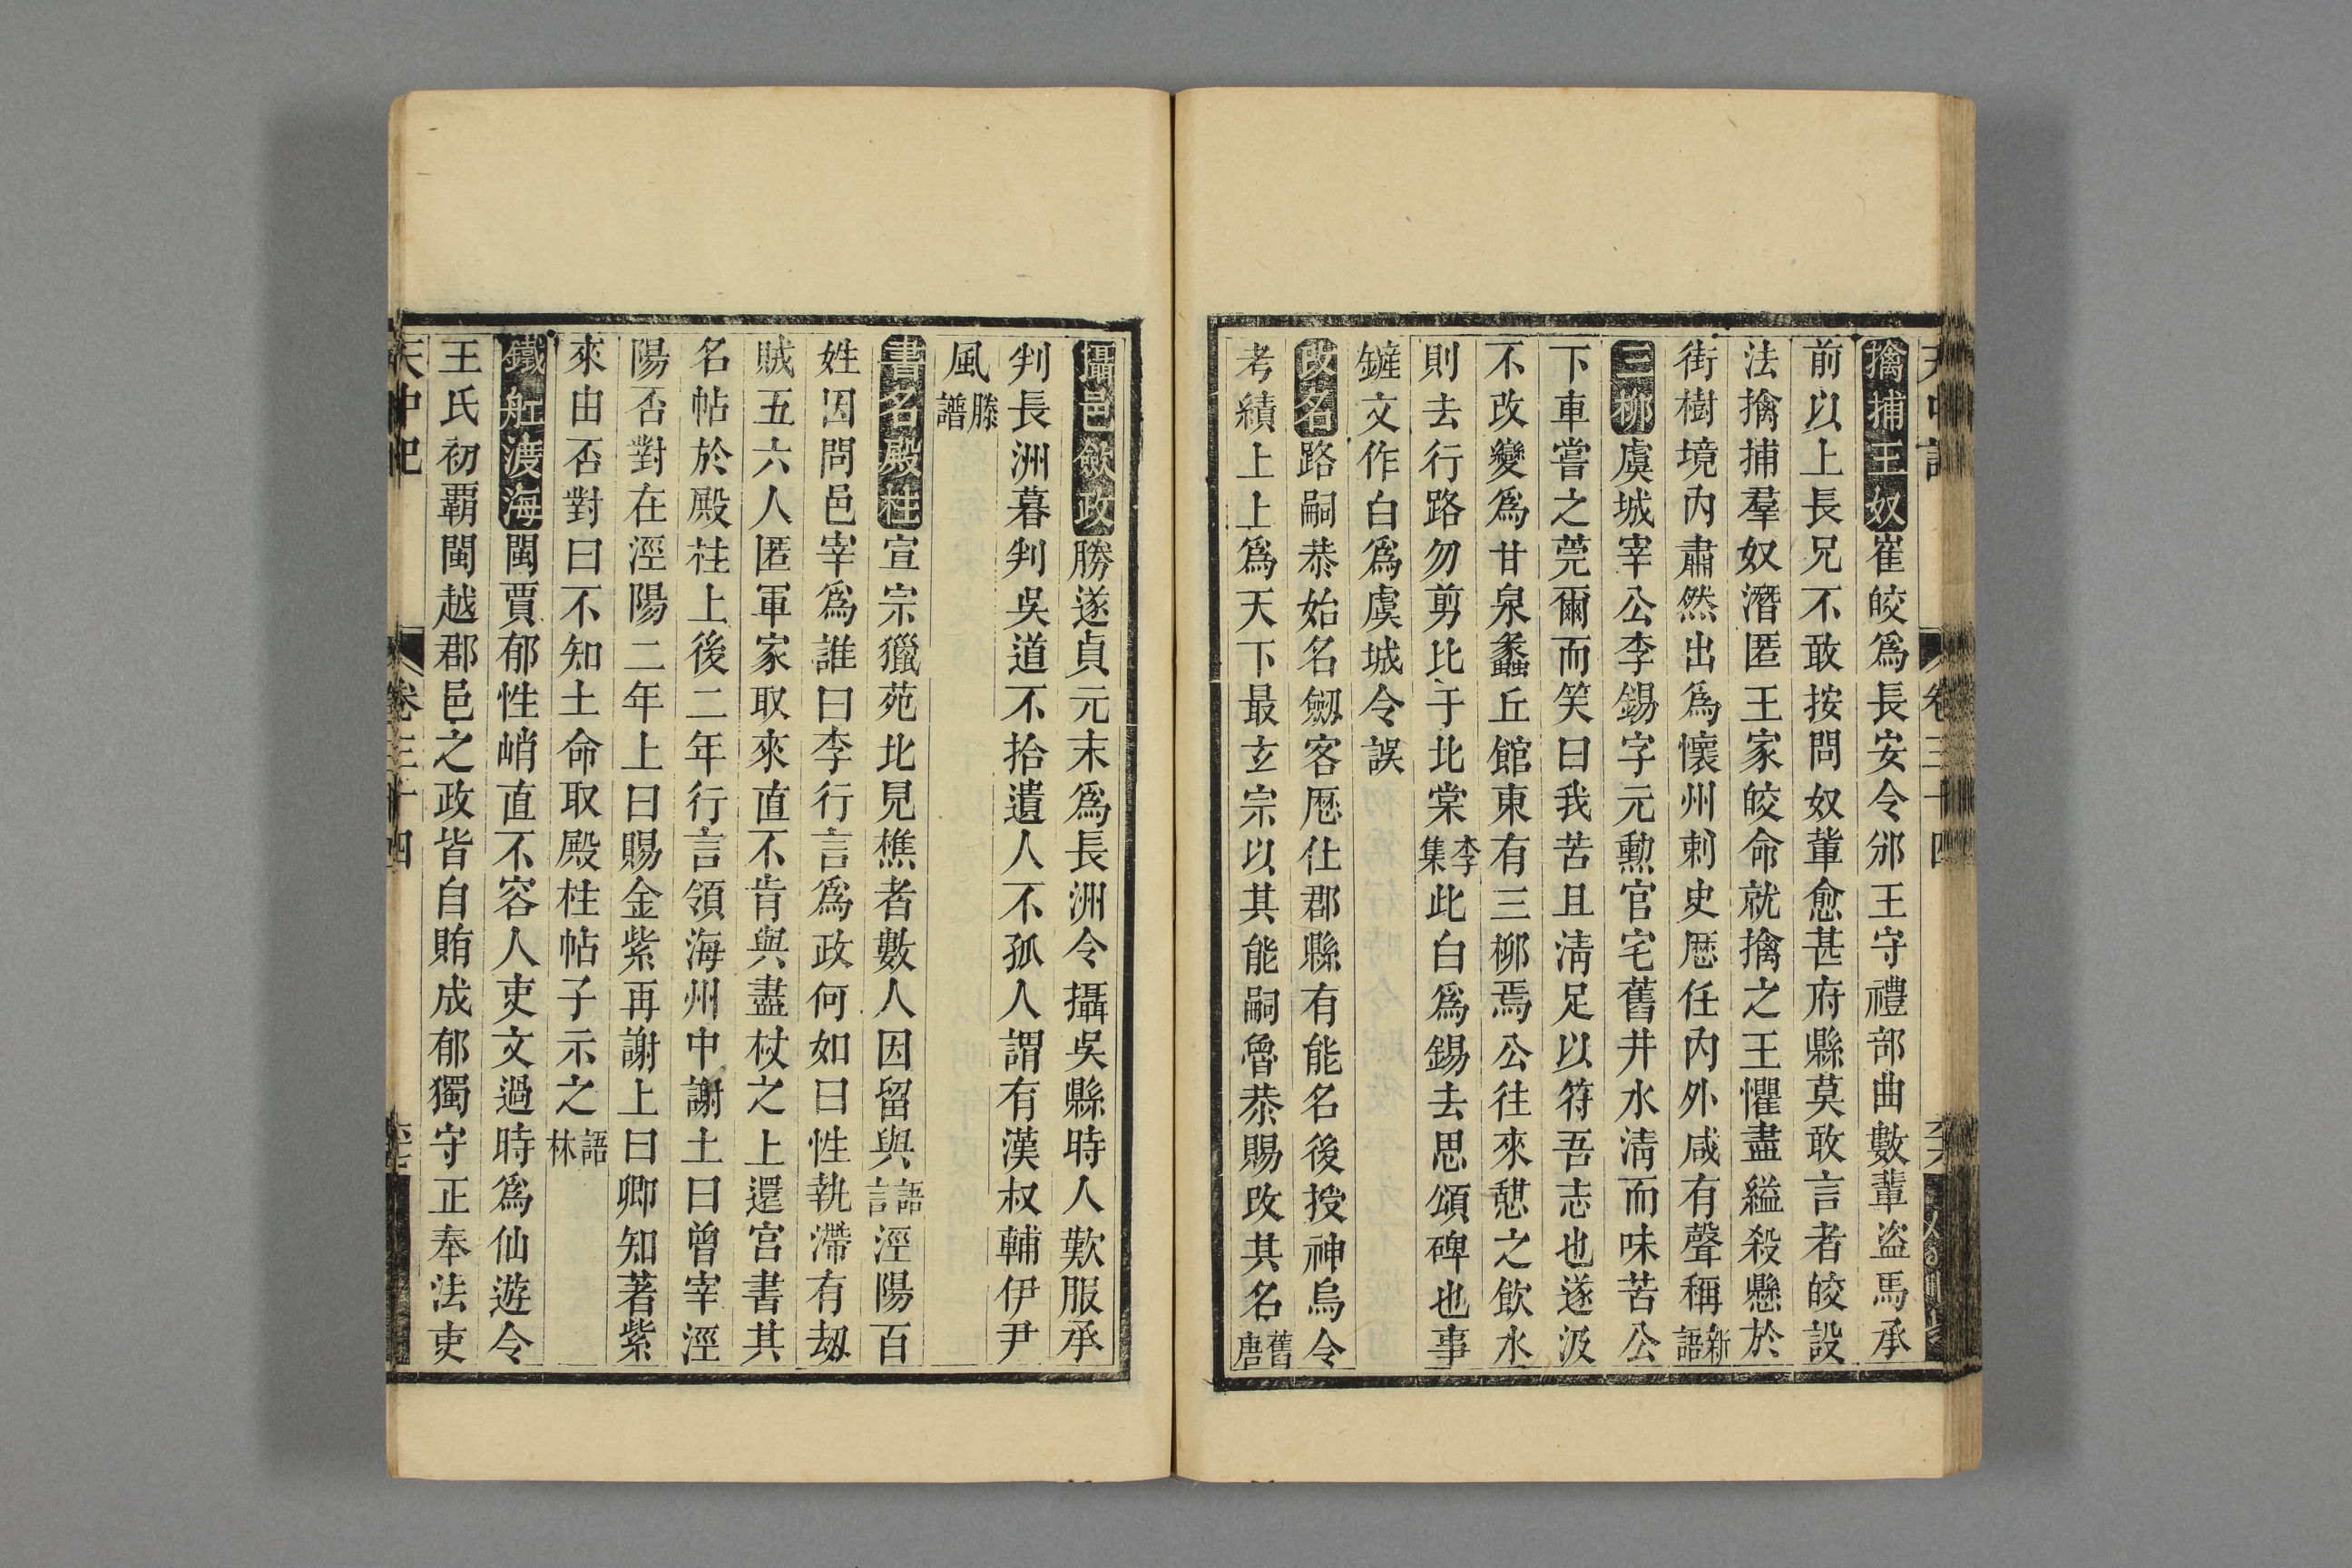 天中記
卷三十四
六六
擒捕王奴崔皎爲長安令邠王守禮部曲數輩盗馬承
前以上長兄不敢按問奴輩愈甚府縣莫敢言者皎設
法擒捕羣奴潛匿王家皎命就擒之王懼盡縊殺懸於
街樹境內肅然出爲懷州刺史歷任內外咸有聲稱新語
三柳虞城宰公李錫字元勲官宅舊井水清而味苦公
下車嘗之莞爾而笑曰我苦且清足以符吾志也遂汲
不改變爲甘泉蠡丘館東有三柳焉公往來憇之飲水
則去行路勿剪比于北棠李集此白爲錫去思頌碑也事
鏟文作白爲虞城令誤
改名路嗣恭始名劒客歷仕郡縣有能名後授神烏令
考績上上爲天下最玄宗以其能嗣魯恭賜改其名舊唐
攝邑歛政勝遂貞元末爲長洲令攝吳縣時人歎服承
判長洲暮判吳道不拾遺人不孤人謂有漢叔輔伊尹
風滕譜
書名殿柱宣宗獵苑北見樵者數人因留與語言涇陽百
姓因問邑宰爲誰曰李行言爲政何如曰性執滯有刼
賊五六人匿軍家取來直不肯與盡杖之上還宮書其
名帖於殿柱上後二年行言領海州中謝土曰曾宰涇
陽否對在涇陽二年上曰賜金紫再謝上曰卿知著紫
來由否對曰不知土命取殿柱帖子示之語林
鐵舡渡海閩賈郁性峭直不容人吏文過時爲仙遊令
王氏初覇閩越郡邑之政皆自賄成郁獨守正奉法吏
天中記
卷三十四